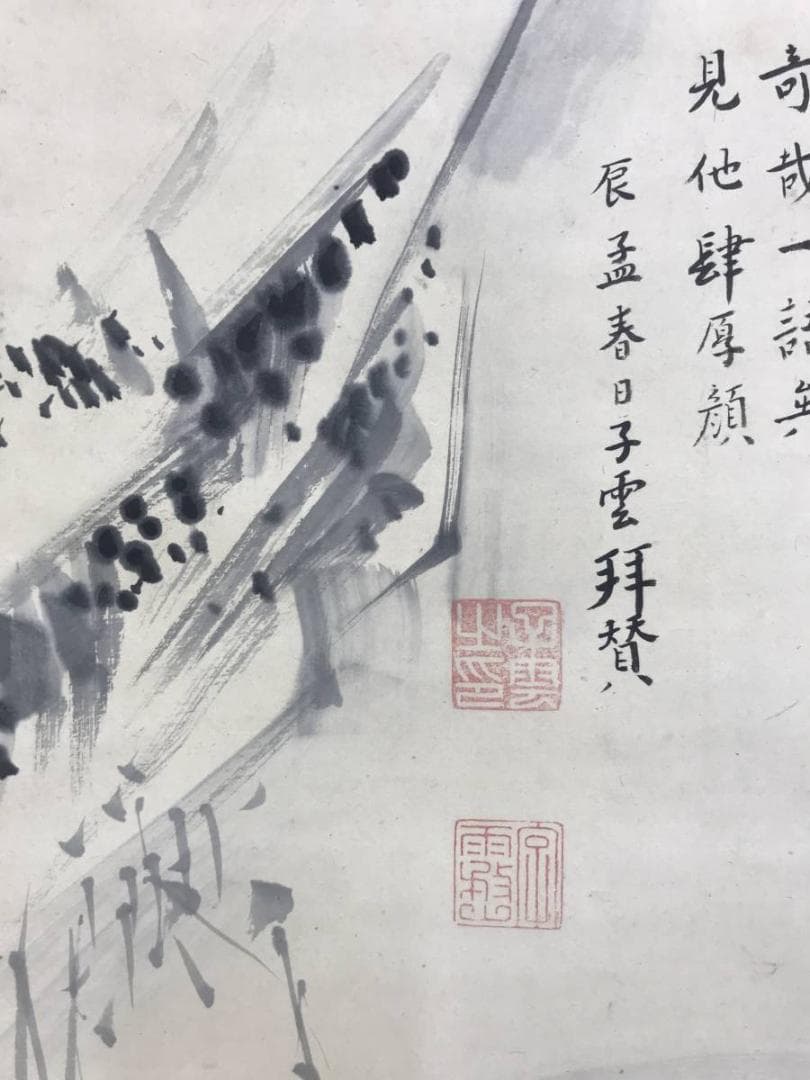 奇哉一語無
見他肆厚顔
辰孟春日子雲拜贊